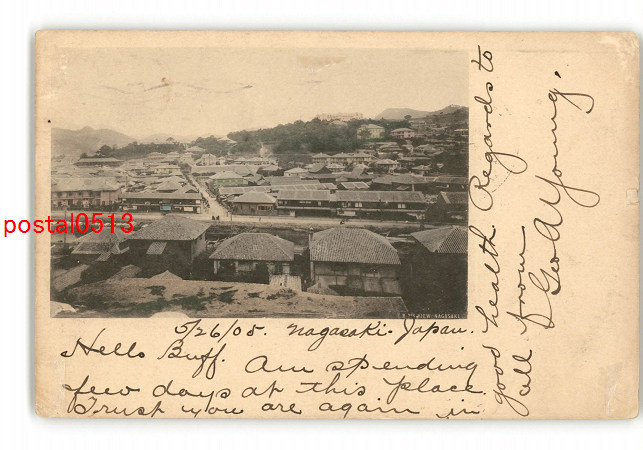 postal0513
VIEW. NAGASAKI.
5/26/05. Nagasaki. Japan.
Hello Buff. Am spending
few days at this place.
Trust you are again in
good health Regards to
all from
Geo A Young.